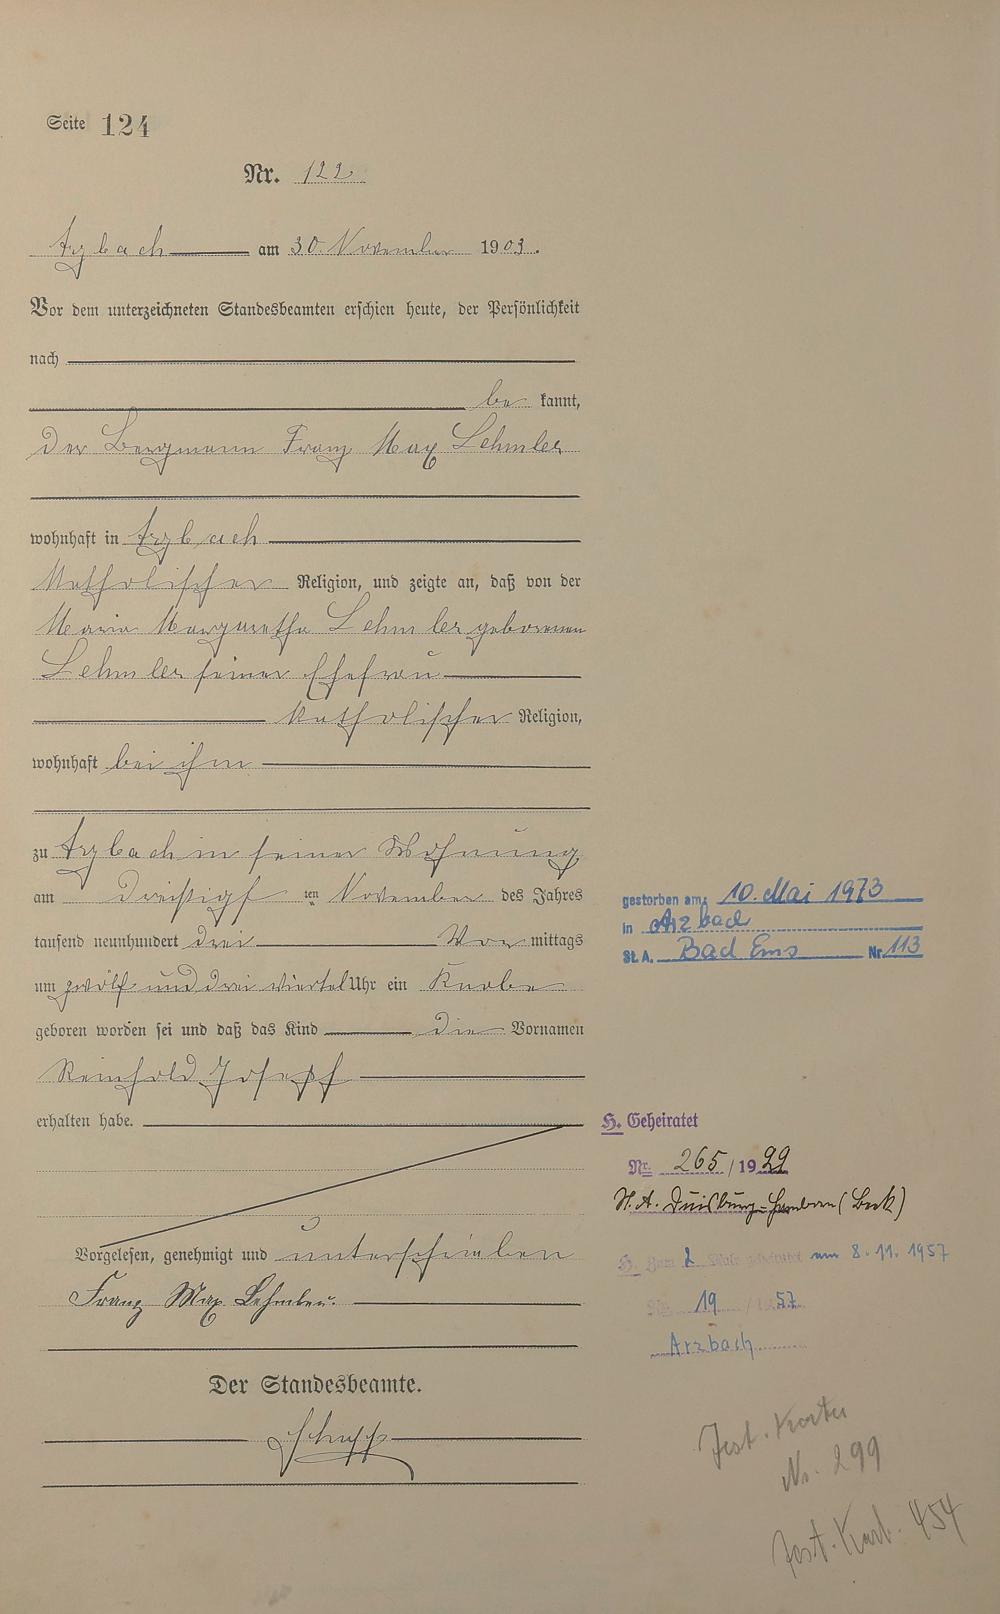 Seite 124
Nr. 122
Arzbach am 30. November 1903.
Vor dem unterzeichneten Standesbeamten erschien heute, der Persönlichkeit
nach
be kannt,
der Bergmann Franz Max Lehmler
wohnhaft in Arzbach
katholischer Religion, und zeigte an, daß von der
Maria Margaretha Lehmler geborenen
Lehmler seiner Ehefrau
katholischer Religion,
wohnhaft bei ihm
zu Arzbach in seiner Wohnung
am dreißigsten November des Jahres
tausend neunhundert drei Vor mittags
um zwölf und drei viertel Uhr ein Knabe
geboren worden sei und daß das Kind die Vornamen
Reinhold Joseph
erhalten habe.
Vorgelesen, genehmigt und unterschrieben
Franz Max Lehmler.
Der Standesbeamte.
gestorben am: 10. Mai 1973
in Arzbach
St.A. Bad Ems Nr. 113
H. Geheiratet
Nr. 265/1929
St. A. Duisburg-Hamborn (Beek)
H. Zum 2. Male geheiratet am 8.11.1957
Nr. 19 / 1957
Arzbach
Test. Kartei
Nr. 299
Test. Kart. 454